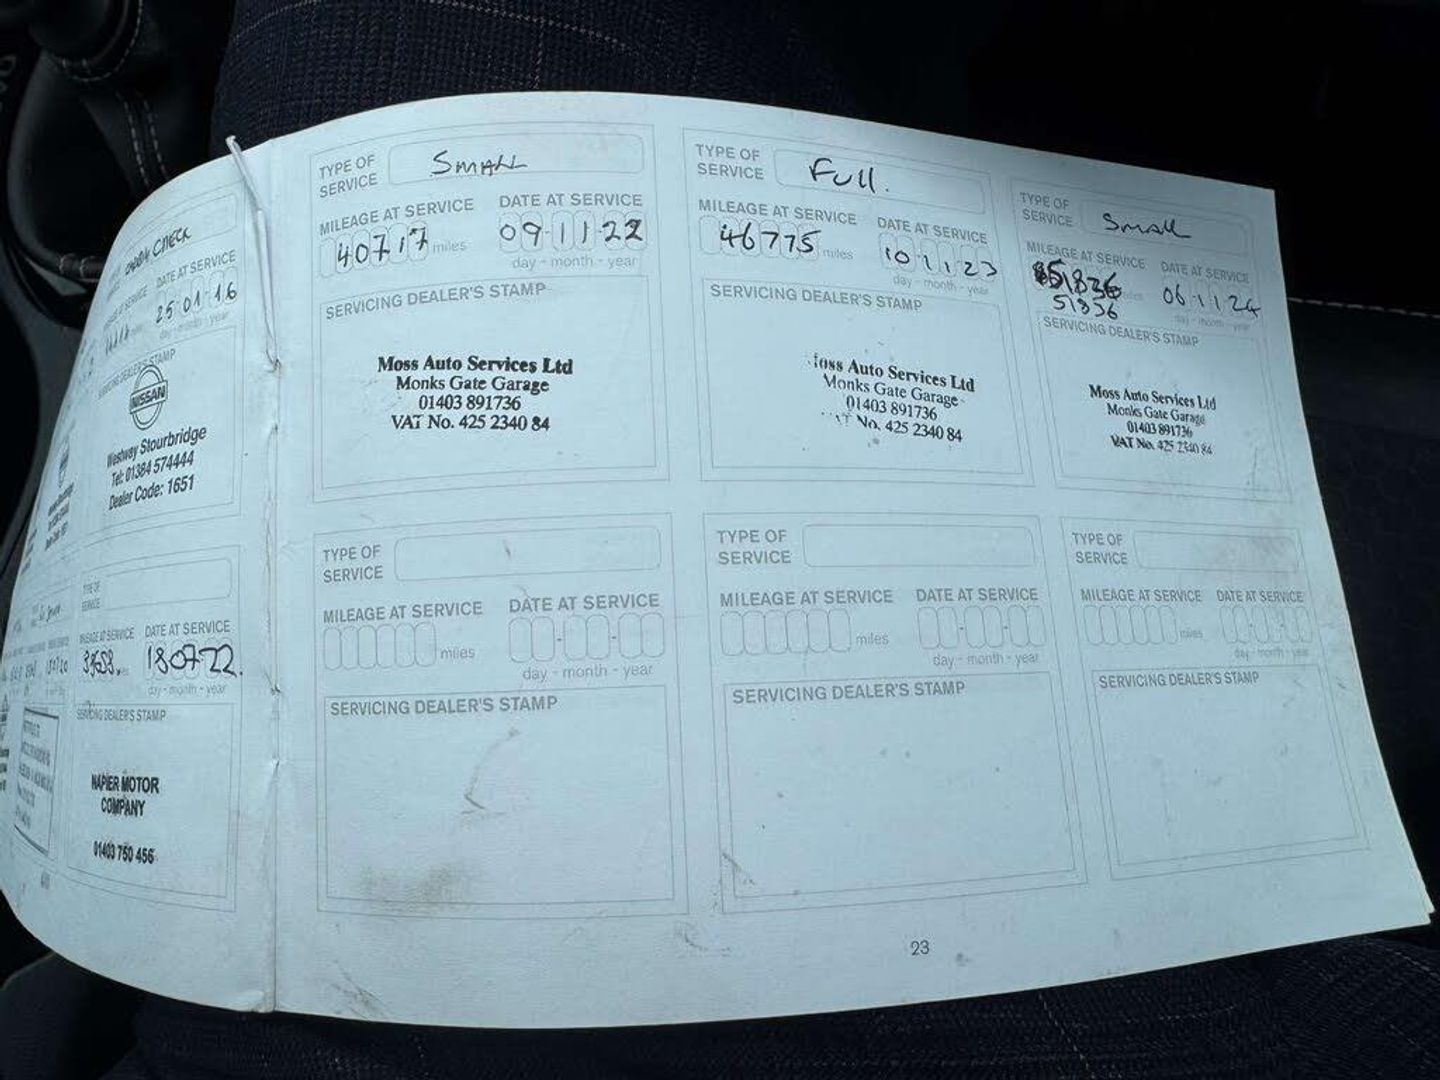 CHECK
DATE AT SERVICE
25 01 16
day - month - year
SERVICING DEALER'S STAMP
NISSAN
Westway Stourbridge
Tel: 01384 574444
Dealer Code: 1651
TYPE OF
SERVICE
MILEAGE AT SERVICE DATE AT SERVICE
18 07 22.
day - month - year
SERVICING DEALER'S STAMP
NAPIER MOTOR
COMPANY
01403 750 456
TYPE OF
SERVICE
SMALL
MILEAGE AT SERVICE DATE AT SERVICE
40717 miles 09-11-22
day - month - year
SERVICING DEALER'S STAMP
Moss Auto Services Ltd
Monks Gate Garage
01403 891736
VAT No. 425 2340 84
TYPE OF
SERVICE
Full.
MILEAGE AT SERVICE DATE AT SERVICE
46775 miles 10 11 23
day - month - year
SERVICING DEALER'S STAMP
oss Auto Services Ltd
Monks Gate Garage
01403 891736
T No. 425 2340 84
TYPE OF
SERVICE
Small
MILEAGE AT SERVICE DATE AT SERVICE
51836 06 11 24
day - month - year
SERVICING DEALER'S STAMP
Moss Auto Services Ltd
Monks Gate Garage
01403 891736
VAT No. 425 2340 84
TYPE OF
SERVICE
MILEAGE AT SERVICE DATE AT SERVICE
miles
day - month - year
SERVICING DEALER'S STAMP
TYPE OF
SERVICE
MILEAGE AT SERVICE DATE AT SERVICE
miles
day - month - year
SERVICING DEALER'S STAMP
TYPE OF
SERVICE
MILEAGE AT SERVICE DATE AT SERVICE
miles
day - month - year
SERVICING DEALER'S STAMP
23